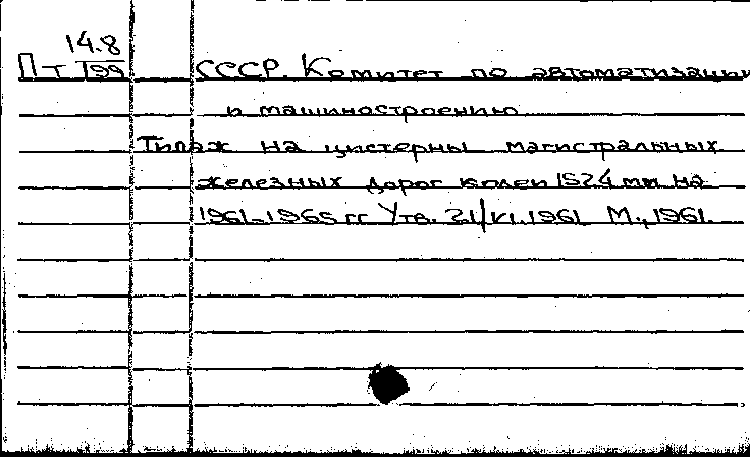 14.8
П т 199 СССР. Комитет по автоматизации
и машиностроению
Типаж на цистерны магистральных
железных дорог колеи 1524 мм на
1961-1965 гг Утв. 21/VI.1961 М., 1961.